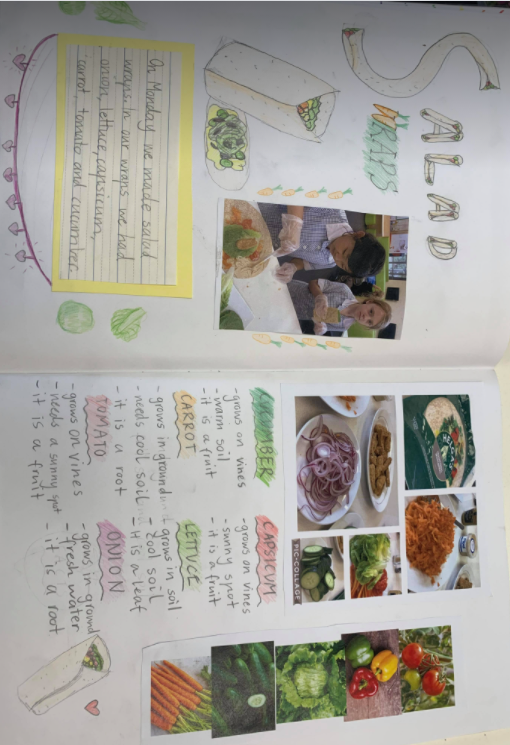 SALAD
WRAPS
On Monday we made salad
wraps. In our wraps we had
onion, lettuce, capsicum,
carrot, tomato and cucumber.
CUCUMBER
- grows on vines
- warm soil
- it is a fruit
CARROT
- grows in ground
- needs cool soil
- it is a root
TOMATO
- grows on vines
- needs a sunny spot
- it is a fruit
CAPSICUM
- grows on vines
- sunny spot
- it is a fruit
LETTUCE
- grows in soil
- cool soil
- it is a leaf
ONION
- grows in ground
- fresh water
- it is a root
PIC COLLAGE